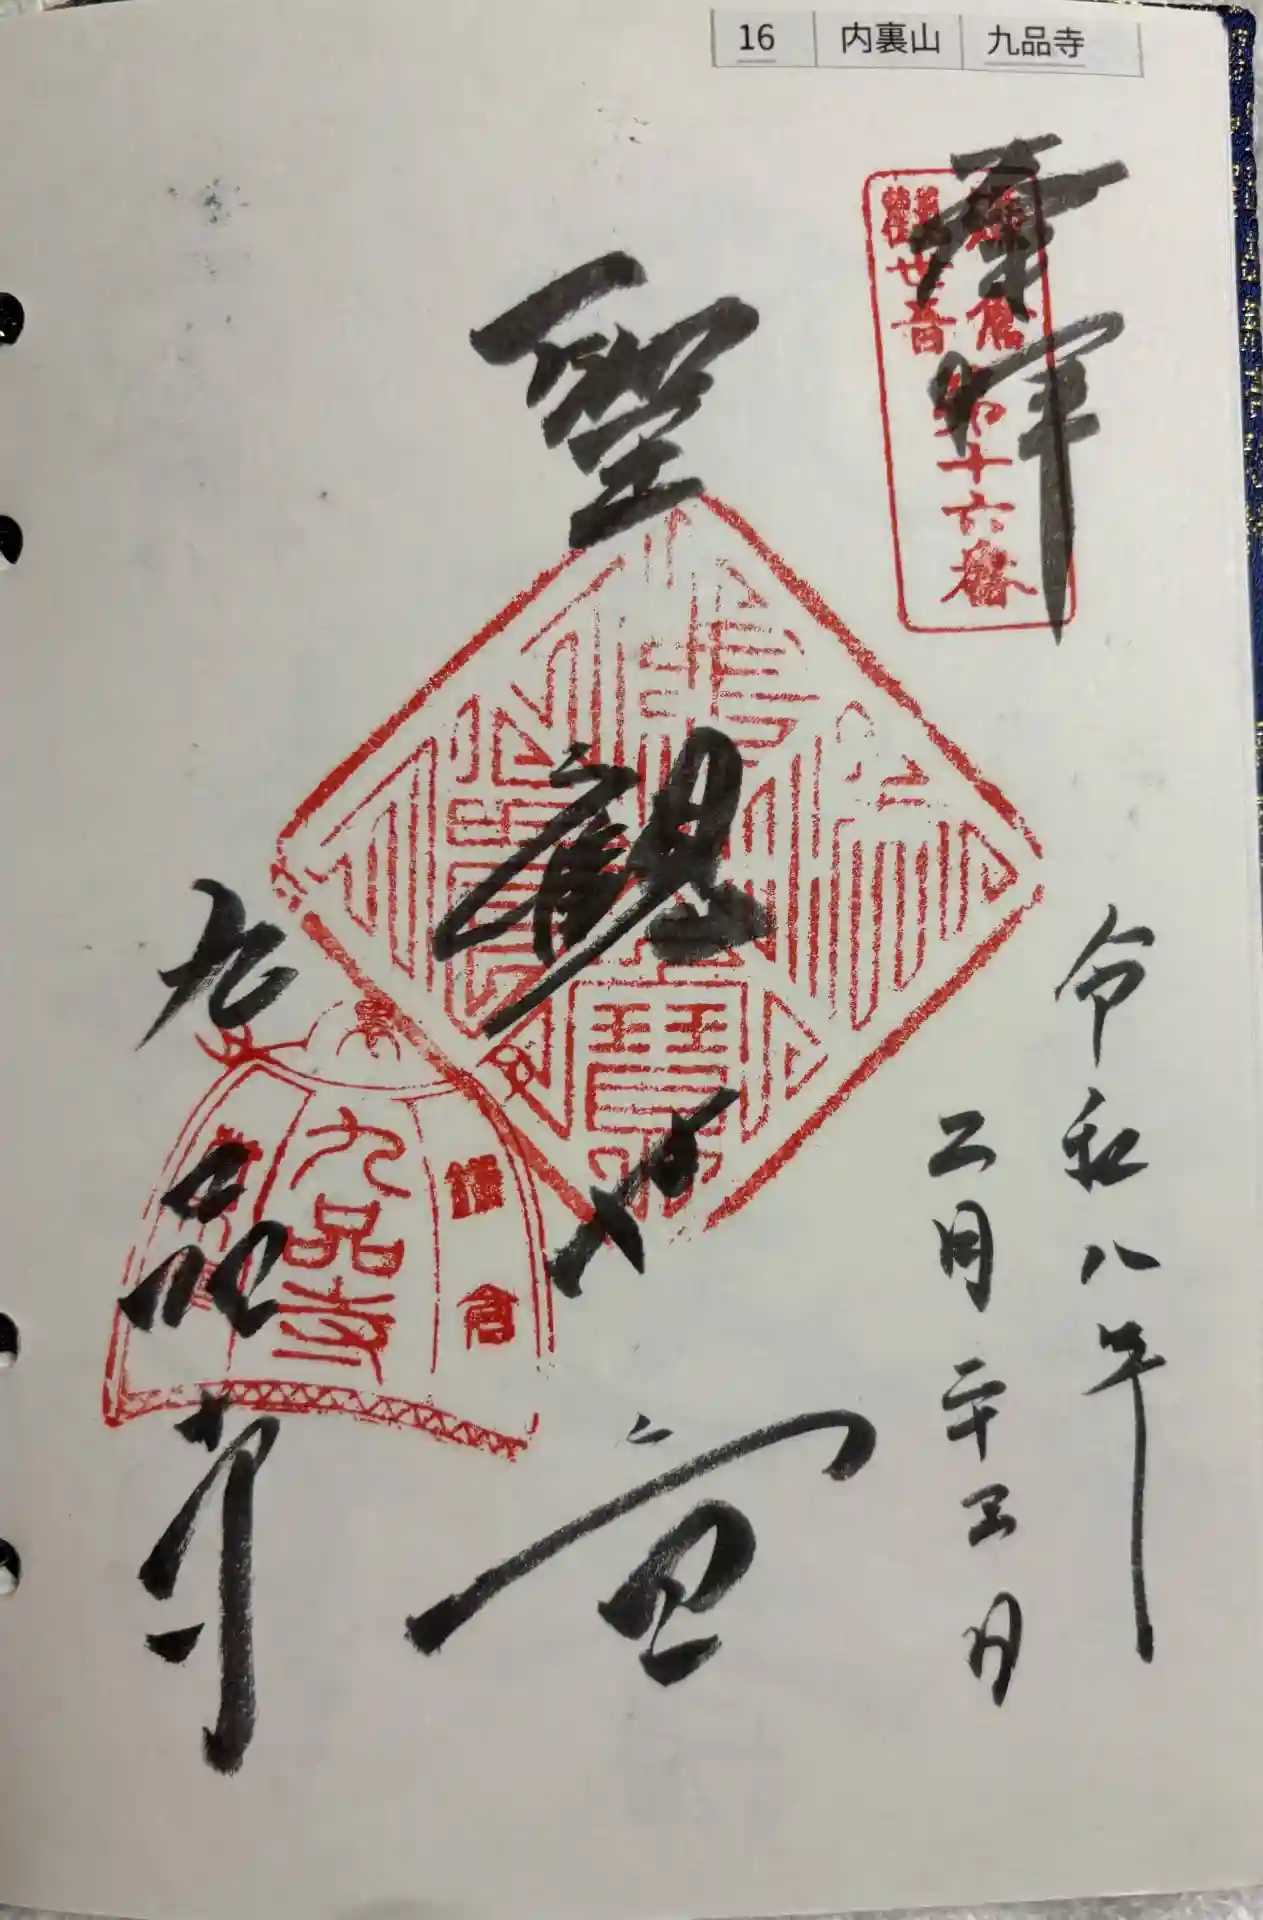 16 内裏山 九品寺
奉拝
鎌倉
観世音
第十六番
令和八年
二月二十三日
聖観世音
九品寺
鎌倉
九品寺